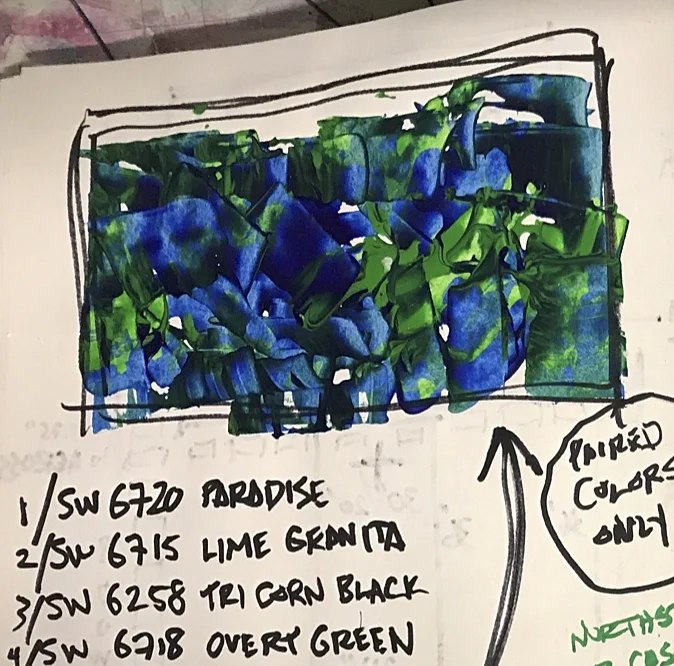 1/SW 6720 PARADISE
2/SW 6715 LIME GRANITA
3/SW 6258 TRICORN BLACK
4/SW 6718 OVERT GREEN
PAIRED
COLORS
ONLY